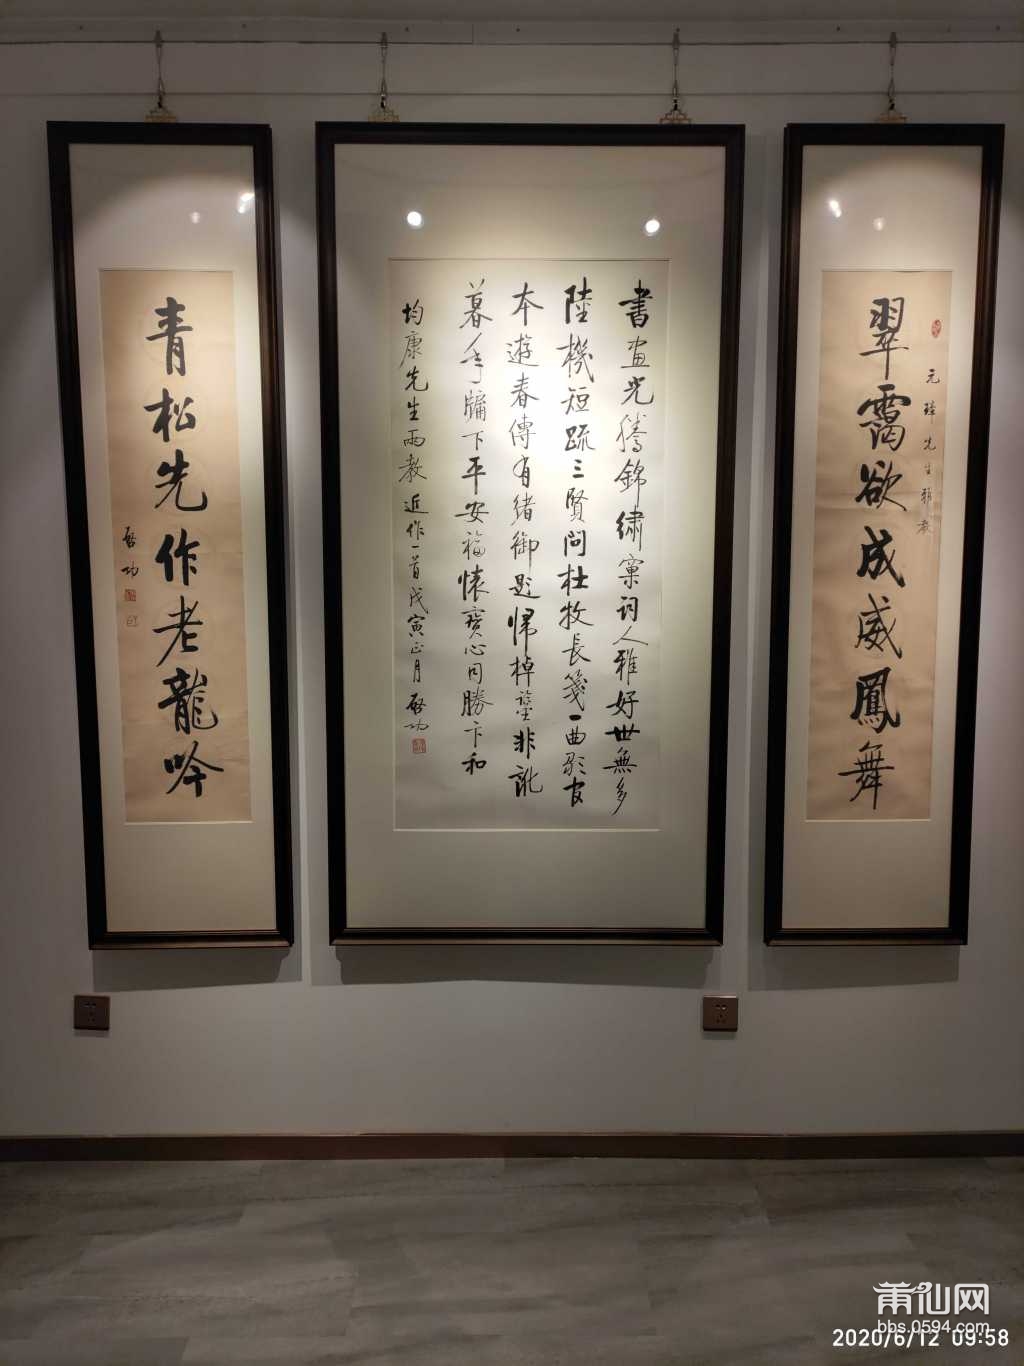 翠靄欲成威鳳舞
元璋先生雅教
書画光騰錦繡窠詞人雅好世無多
陸機短疏三賢問杜牧長箋一曲歌官
本遊春傳有緒御題歸棹鑒非訛
暮年牖下平安福懷寶心同勝卞和
均康先生兩教 近作一首戊寅正月 啟功
青松先作老龍吟
啟功
莆仙网
bbs.0594.com
2020/6/12 09:58